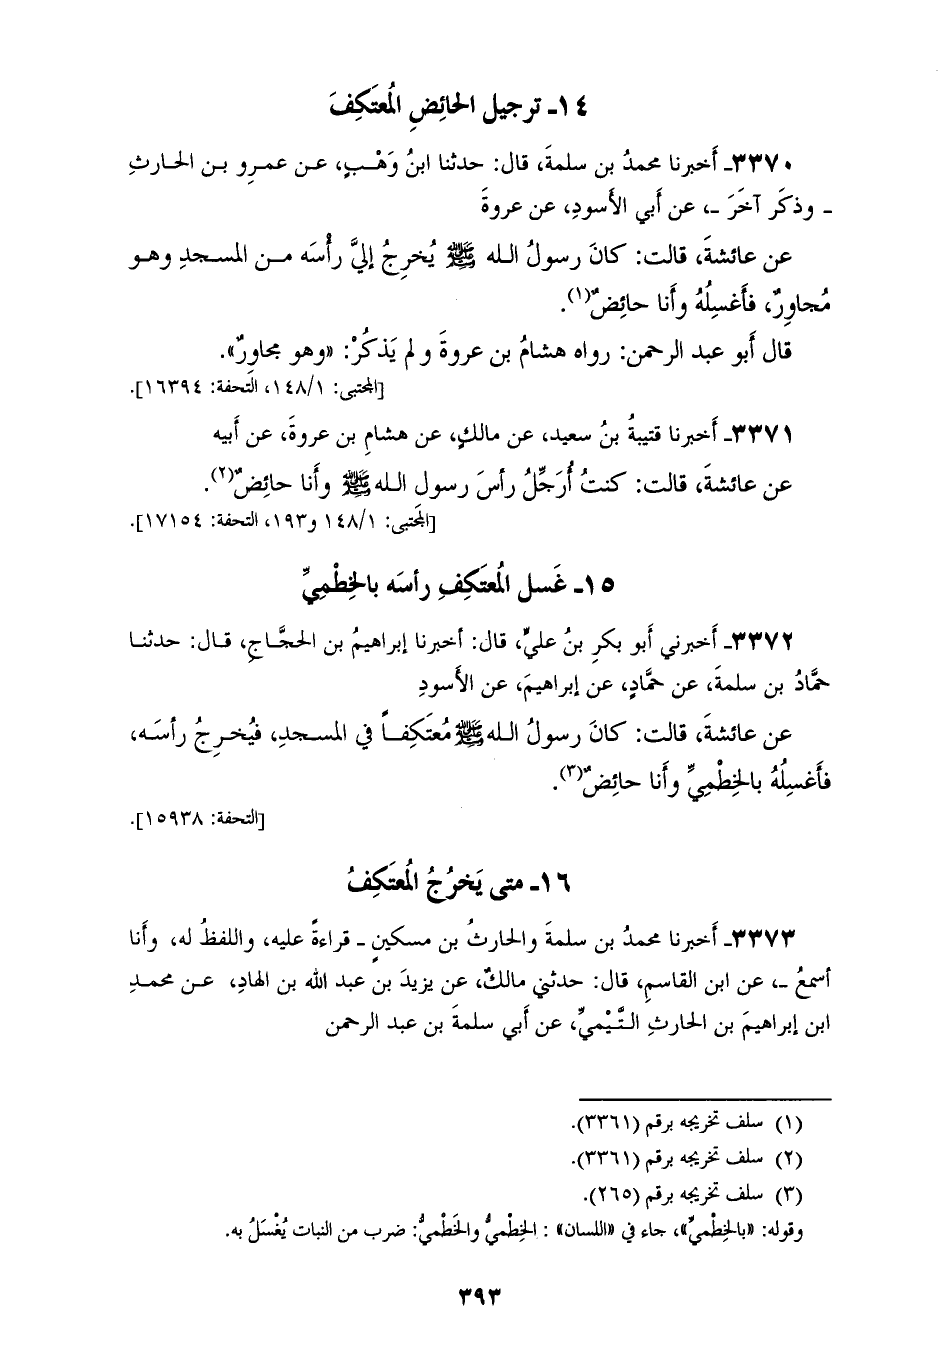 ١٤ـ ترجيل الحائِضِ المُعتَكِفَ
٣٣٧٠ـ أَخبرنا محمدُ بن سلمةَ، قال: حدثنا ابنُ وَهْبٍ، عن عمرِو بن الحارثِ
ـ وذكَر آخَرَ ـ، عن أَبي الأَسودِ، عن عروةَ
عن عائشةَ، قالت: كانَ رسولُ الله ﷺ يُخرِجُ إليَّ رأْسَه من المسجدِ وهو
مُجاوِرٌ، فأَغسِلُهُ وأَنا حائِضٌ(١).
قال أَبو عبد الرحمن: رواه هشامُ بن عروةَ ولم يَذكُرْ: «وهو مجاوِرٌ».
[المجتبى: ١٤٨/١، التحفة: ١٦٣٩٤].
٣٣٧١ـ أَخبرنا قتيبةُ بنُ سعيد، عن مالكٍ، عن هشامِ بن عروةَ، عن أَبيه
عن عائشةَ، قالت: كنتُ أُرَجِّلُ رأسَ رسول الله ﷺ وأَنا حائِضٌ(٢).
[المجتبى: ١٤٨/١ و١٩٣، التحفة: ١٧١٥٤].
١٥ـ غَسل المُعتَكِفِ رأسَه بالخِطْمِيِّ
٣٣٧٢ـ أَخبرني أَبو بكرِ بنُ عليٍّ، قال: أخبرنا إبراهيمُ بن الحجَّاجِ، قال: حدثنا
حمَّادُ بن سلمةَ، عن حمَّادٍ، عن إبراهيمَ، عن الأَسودِ
عن عائشةَ، قالت: كانَ رسولُ الله ﷺ مُعتَكِفاً في المسجدِ، فيُخرِجُ رأسَه،
فأَغسِلُهُ بالخِطْمِيِّ وأَنا حائِضٌ(٣).
[التحفة: ١٥٩٣٨].
١٦ـ متى يَخرُجُ المُعتَكِفُ
٣٣٧٣ـ أَخبرنا محمدُ بن سلمةَ والحارثُ بن مسكينٍ ـ قراءةً عليه، واللفظُ له، وأَنا
أسمعُ ـ، عن ابن القاسمِ، قال: حدثني مالكٌ، عن يزيدَ بن عبد الله بن الهادِ، عن محمدِ
ابن إبراهيمَ بن الحارثِ التَّيْميِّ، عن أَبي سلمةَ بن عبد الرحمن
(١) سلف تخريجه برقم (٣٣٦١).
(٢) سلف تخريجه برقم (٣٣٦١).
(٣) سلف تخريجه برقم (٢٦٥).
وقوله: «بالخِطْميِّ»، جاء في «اللسان» : الخِطْميُّ والخَطْميُّ: ضرب من النبات يُغْسَلُ به.
٣٩٣